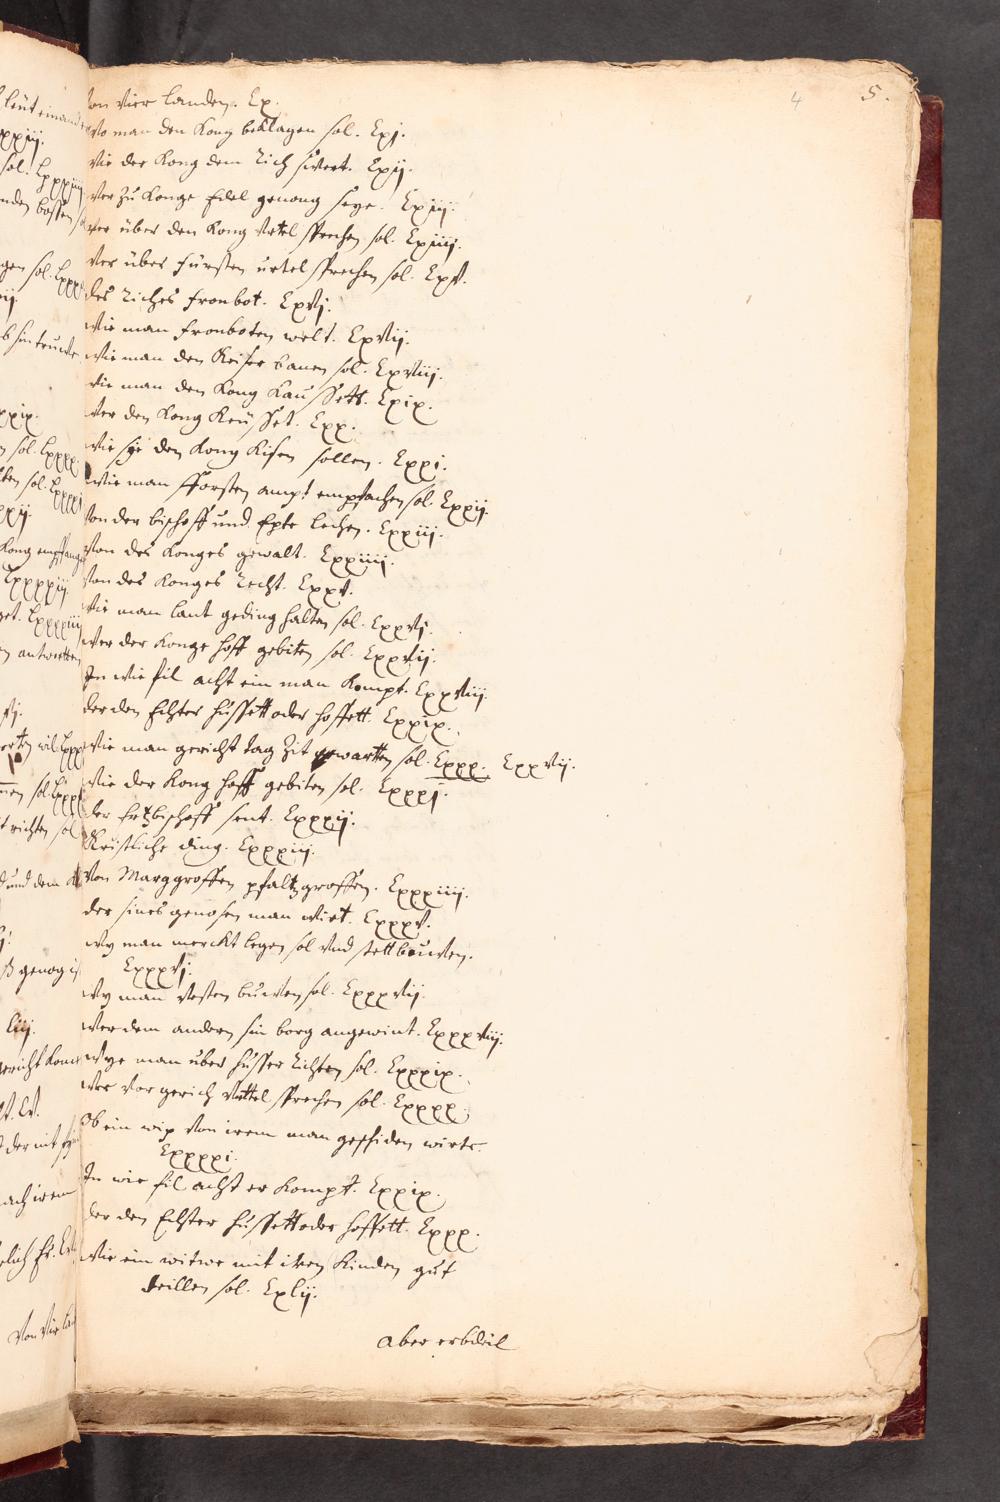 4 5.
Von Vier landen. Cx.
Wo man den Kong beklagen sol. Cxj.
Wie der Kong dem Rich swert. Cxij.
Wer zu Konge Edel genong seye. Cxiij.
Wer über den Kong Vrtel sprechen sol. Cxiiij.
Wer über fürsten urtel sprechen sol. CxV.
Des Riches fronbot. CxVj.
Wie man fronboten welt. CxVij.
Wie man den Keiser banen sol. CxViij.
Wie man den Kong Kaussett. Cxix.
Wer den Kong Keusset. Cxx.
Wie sye den Kong Kisen sollen. Cxxi.
Wie man fforsten ampt empfachen sol. Cxxij.
Von der bischoff und Epte lechen. Cxxiij.
Von des Konges gewalt. Cxxiiij.
Von des Konges Recht. CxxV.
Wie man lant geding halten sol. CxxVj.
Wer der Konge hoff gebiten sol. CxxVij.
In wie fil acht ein man Kompt. CxxViij.
Der den Echter hussett oder hoffett. Cxxix.
Wie man gericht tag Zit wartten sol. Cxxx. CxxVij.
Wie der Kong hoff gebiten sol. Cxxxj.
Der Ertzbischoff sent. Cxxxij.
Kristliche ding. Cxxxiij.
Von Marggroffen pfaltzgroffen. Cxxxiiij.
Der sines genosen man wirt. CxxxV.
Wy man merckt legen sol und stett bouwen.
CxxxVj.
Wy man Vesten buwen sol. CxxxVij.
Wer dem andern sin borg angewint. CxxxViij.
Wye man über husser Richten sol. Cxxxix.
Wer Vor gerich Vrttel sprechen sol. Cxxxx.
Ob ein wip Von irem man gescheiden wirt.
Cxxxxi.
In wie fil acht er Kompt. Cxxix.
Der den Echter hussett oder hoffett. Cxxx.
Wie ein witwe mit iren Kinden gut
deillen sol. Cxlij.
aber erbdeil